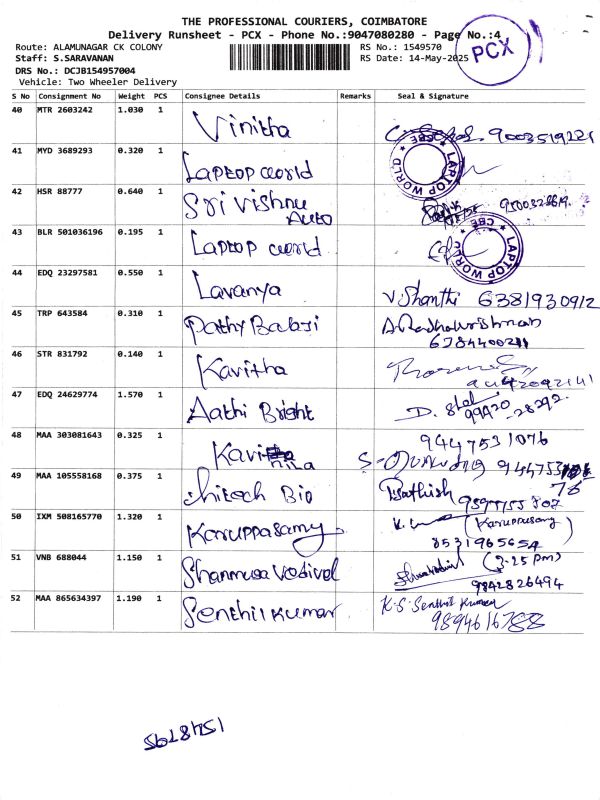 THE PROFESSIONAL COURIERS, COIMBATORE
Delivery Runsheet - PCX - Phone No.:9047080280 - Page No.:4
PCX
Route: ALAMUNAGAR CK COLONY
RS No.: 1549570
Staff: S.SARAVANAN
RS Date: 14-May-2025
DRS No.: DCJB154957004
Vehicle: Two Wheeler Delivery
S No Consignment No Weight PCS Consignee Details Remarks Seal & Signature
40 MTR 2603242 1.030 1 Vinitha 9003519221
41 MYD 3689293 0.320 1 Laptop world LAPTOP WORLD CBE
42 HSR 88777 0.640 1 Sri Vishnu Auto
43 BLR 501036196 0.195 1 Laptop world LAPTOP WORLD CBE
44 EDQ 23297581 0.550 1 Lavanya V. Shanthi 6381930912
45 TRP 643584 0.310 1 Pathy Babji
46 STR 831792 0.140 1 Kavitha
47 EDQ 24629774 1.570 1 Aathi Bright D. 99420-28292
48 MAA 303081643 0.325 1 9447531076
49 MAA 105558168 0.375 1 Bio
50 IXM 508165770 1.320 1 Karuppasamy (Karuppasamy)
8531965654
51 VNB 688044 1.150 1 Shanmuga Vadivel (3.25 pm)
9842826494
52 MAA 865634397 1.190 1 Senthil Kumar K.S. Senthil Kumar
9894616788
1548795